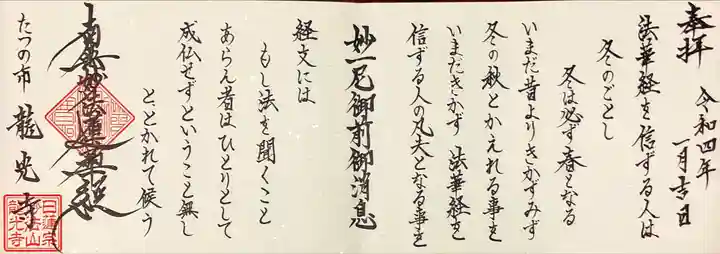 奉拝
令和四年
一月吉日
法華経を信ずる人は
冬のごとし
冬は必ず春となる
いまだ昔よりきかずみず
冬の秋とかえれる事を
いまだきかず 法華経を
信ずる人の凡夫となる事を
妙一尼御前御消息
経文には
もし法を聞くこと
あらん者はひとりとして
成仏せずということ無し
ととかれて候う
南無妙法蓮華経
たつの市 龍光寺
日蓮宗
法山
龍光寺